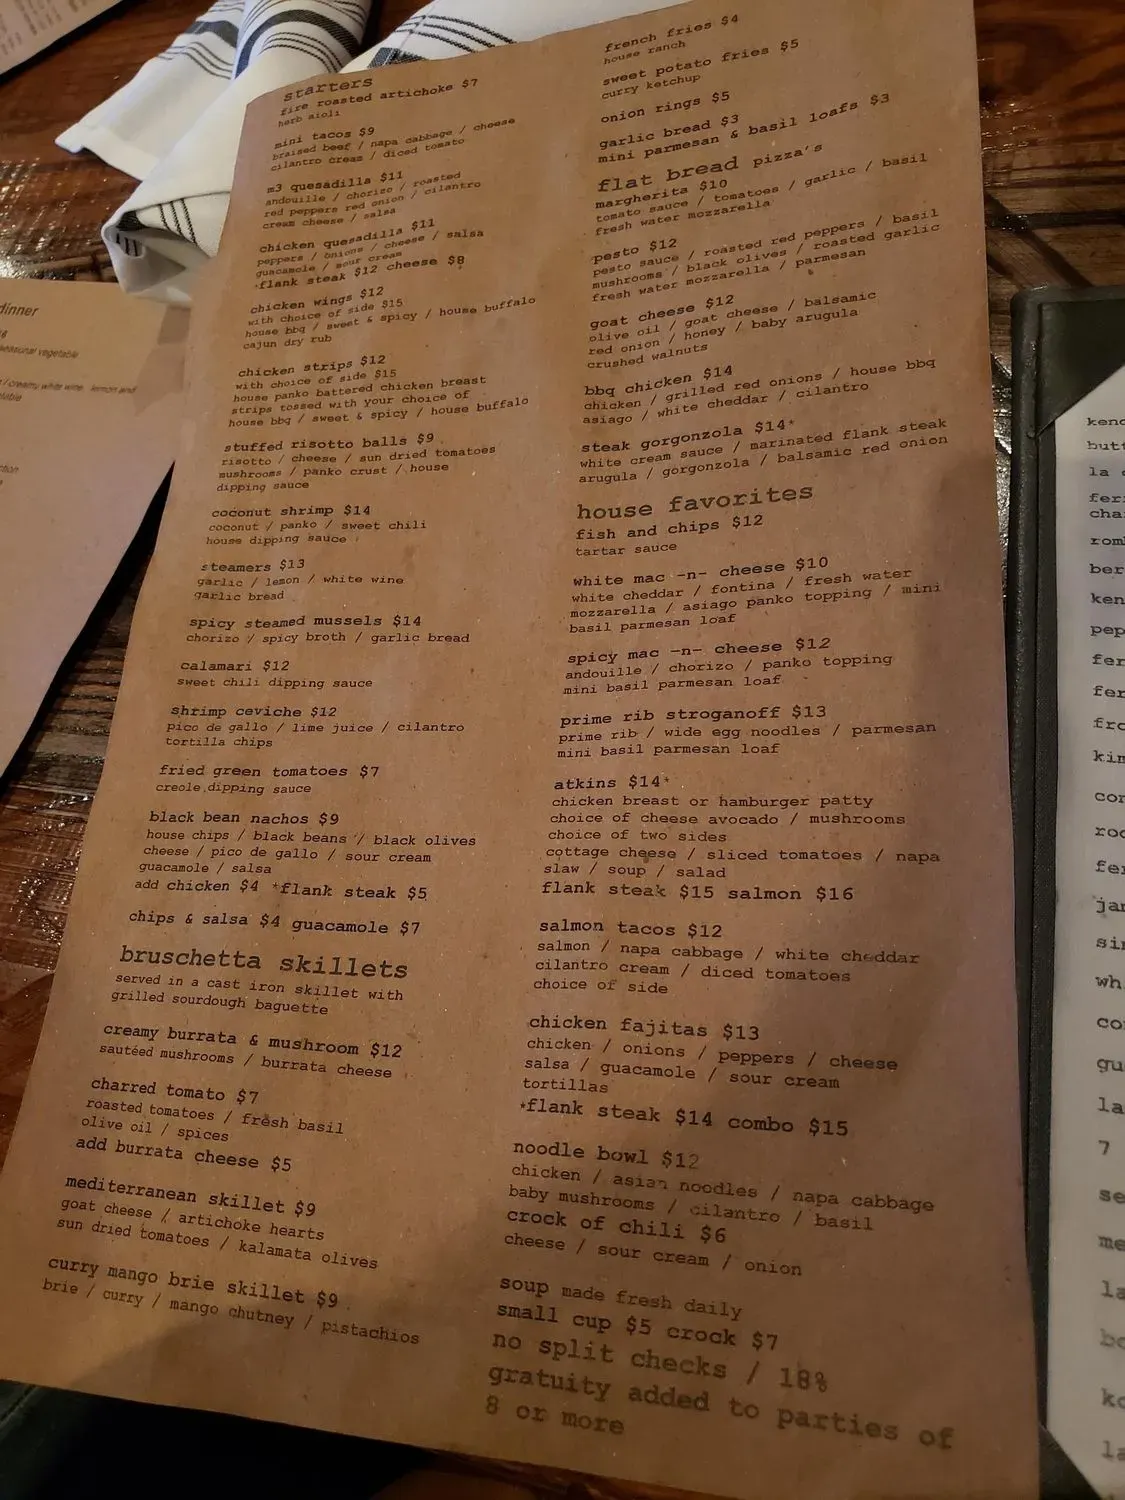 starters
fire roasted artichoke $7
herb aioli
mini tacos $9
braised beef / napa cabbage / cheese
cilantro cream / diced tomato
m3 quesadilla $11
andouille / chorizo / roasted
red peppers red onion / cilantro
cream cheese / salsa
chicken quesadilla $11
peppers / onions / cheese / salsa
guacamole / sour cream
*flank steak $12 cheese $8
chicken wings $12
with choice of side $15
house bbq / sweet & spicy / house buffalo
cajun dry rub
chicken strips $12
with choice of side $15
house panko battered chicken breast
strips tossed with your choice of
house bbq / sweet & spicy / house buffalo
stuffed risotto balls $9
risotto / cheese / sun dried tomatoes
mushrooms / panko crust / house
dipping sauce
coconut shrimp $14
coconut / panko / sweet chili
house dipping sauce
steamers $13
garlic / lemon / white wine
garlic bread
spicy steamed mussels $14
chorizo / spicy broth / garlic bread
calamari $12
sweet chili dipping sauce
shrimp ceviche $12
pico de gallo / lime juice / cilantro
tortilla chips
fried green tomatoes $7
creole dipping sauce
black bean nachos $9
house chips / black beans / black olives
cheese / pico de gallo / sour cream
guacamole / salsa
add chicken $4 *flank steak $5
chips & salsa $4 guacamole $7
bruschetta skillets
served in a cast iron skillet with
grilled sourdough baguette
creamy burrata & mushroom $12
sautéed mushrooms / burrata cheese
charred tomato $7
roasted tomatoes / fresh basil
olive oil / spices
add burrata cheese $5
mediterranean skillet $9
goat cheese / artichoke hearts
sun dried tomatoes / kalamata olives
curry mango brie skillet $9
brie / curry / mango chutney / pistachios
french fries $4
house ranch
sweet potato fries $5
curry ketchup
onion rings $5
garlic bread $3
mini parmesan & basil loafs $3
flat bread pizza's
margherita $10
tomato sauce / tomatoes / garlic / basil
fresh water mozzarella
pesto $12
pesto sauce / roasted red peppers / basil
mushrooms / black olives / roasted garlic
fresh water mozzarella / parmesan
goat cheese $12
olive oil / goat cheese / balsamic
red onion / honey / baby arugula
crushed walnuts
bbq chicken $14
chicken / grilled red onions / house bbq
asiago / white cheddar / cilantro
steak gorgonzola $14*
white cream sauce / marinated flank steak
arugula / gorgonzola / balsamic red onion
house favorites
fish and chips $12
tartar sauce
white mac -n- cheese $10
white cheddar / fontina / fresh water
mozzarella / asiago panko topping / mini
basil parmesan loaf
spicy mac -n- cheese $12
andouille / chorizo / panko topping
mini basil parmesan loaf
prime rib stroganoff $13
prime rib / wide egg noodles / parmesan
mini basil parmesan loaf
atkins $14*
chicken breast or hamburger patty
choice of cheese avocado / mushrooms
choice of two sides
cottage cheese / sliced tomatoes / napa
slaw / soup / salad
flank steak $15 salmon $16
salmon tacos $12
salmon / napa cabbage / white cheddar
cilantro cream / diced tomatoes
choice of side
chicken fajitas $13
chicken / onions / peppers / cheese
salsa / guacamole / sour cream
tortillas
*flank steak $14 combo $15
noodle bowl $12
chicken / asian noodles / napa cabbage
baby mushrooms / cilantro / basil
crock of chili $6
cheese / sour cream / onion
soup made fresh daily
small cup $5 crock $7
no split checks / 18%
gratuity added to parties of
8 or more
dinner
seasonal vegetable
/ creamy white wine lemon and